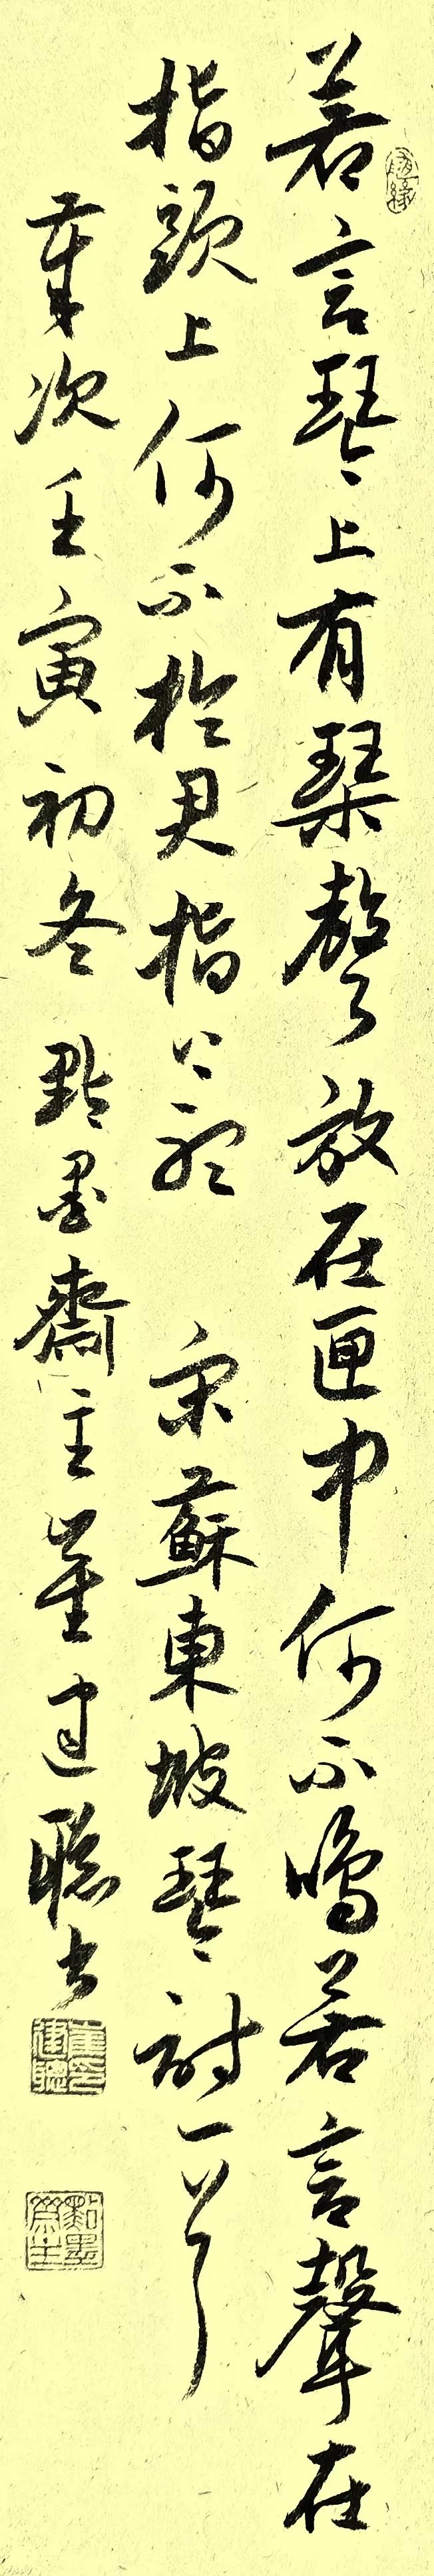 若言琴上有琴聲放在匣中何不鳴若言聲在
指頭上何不於君指上聽 宋蘇東坡琴詩一首
歲次壬寅初冬 點墨齋主崔建聰書
崔印建聰
點墨齋主